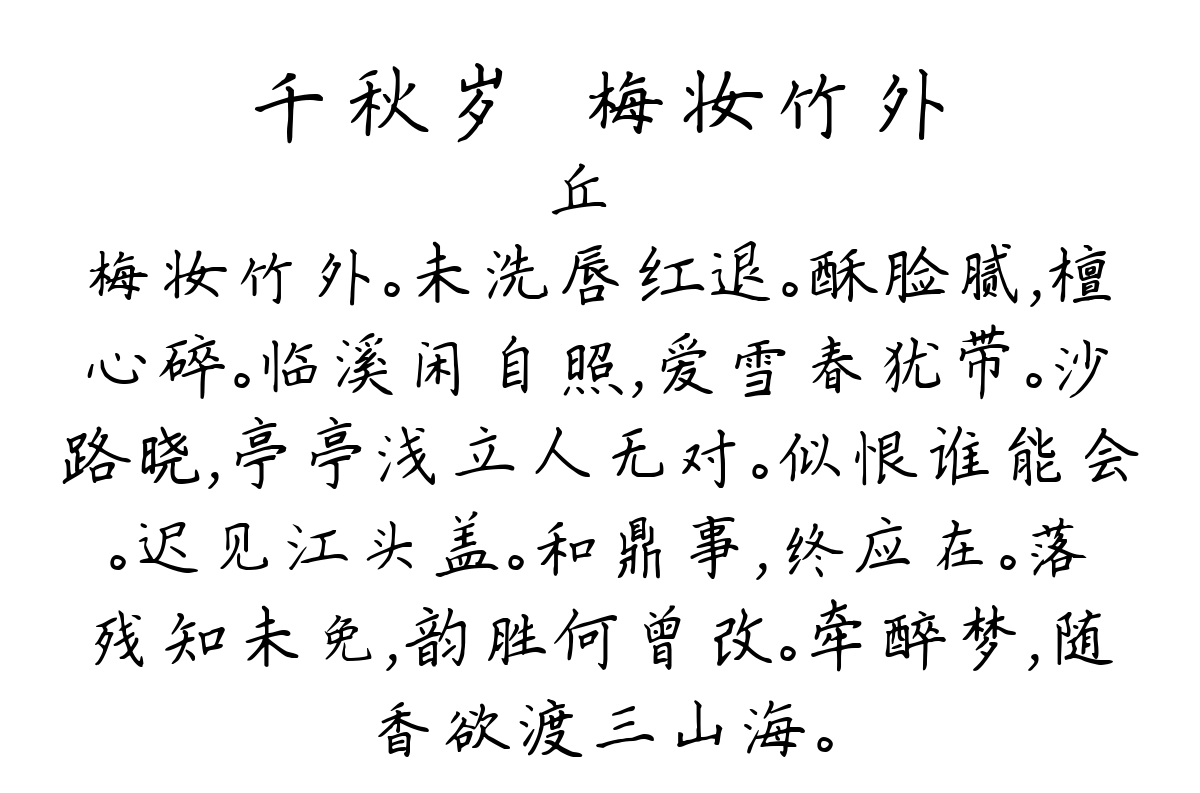 千秋岁 梅妆竹外
丘
梅妆竹外。未洗唇红退。酥脸腻,檀
心碎。临溪闲自照,爱雪春犹带。沙
路晓,亭亭浅立人无对。似恨谁能会
。迟见江头盖。和鼎事,终应在。落
残知未免,韵胜何曾改。牵醉梦,随
香欲渡三山海。